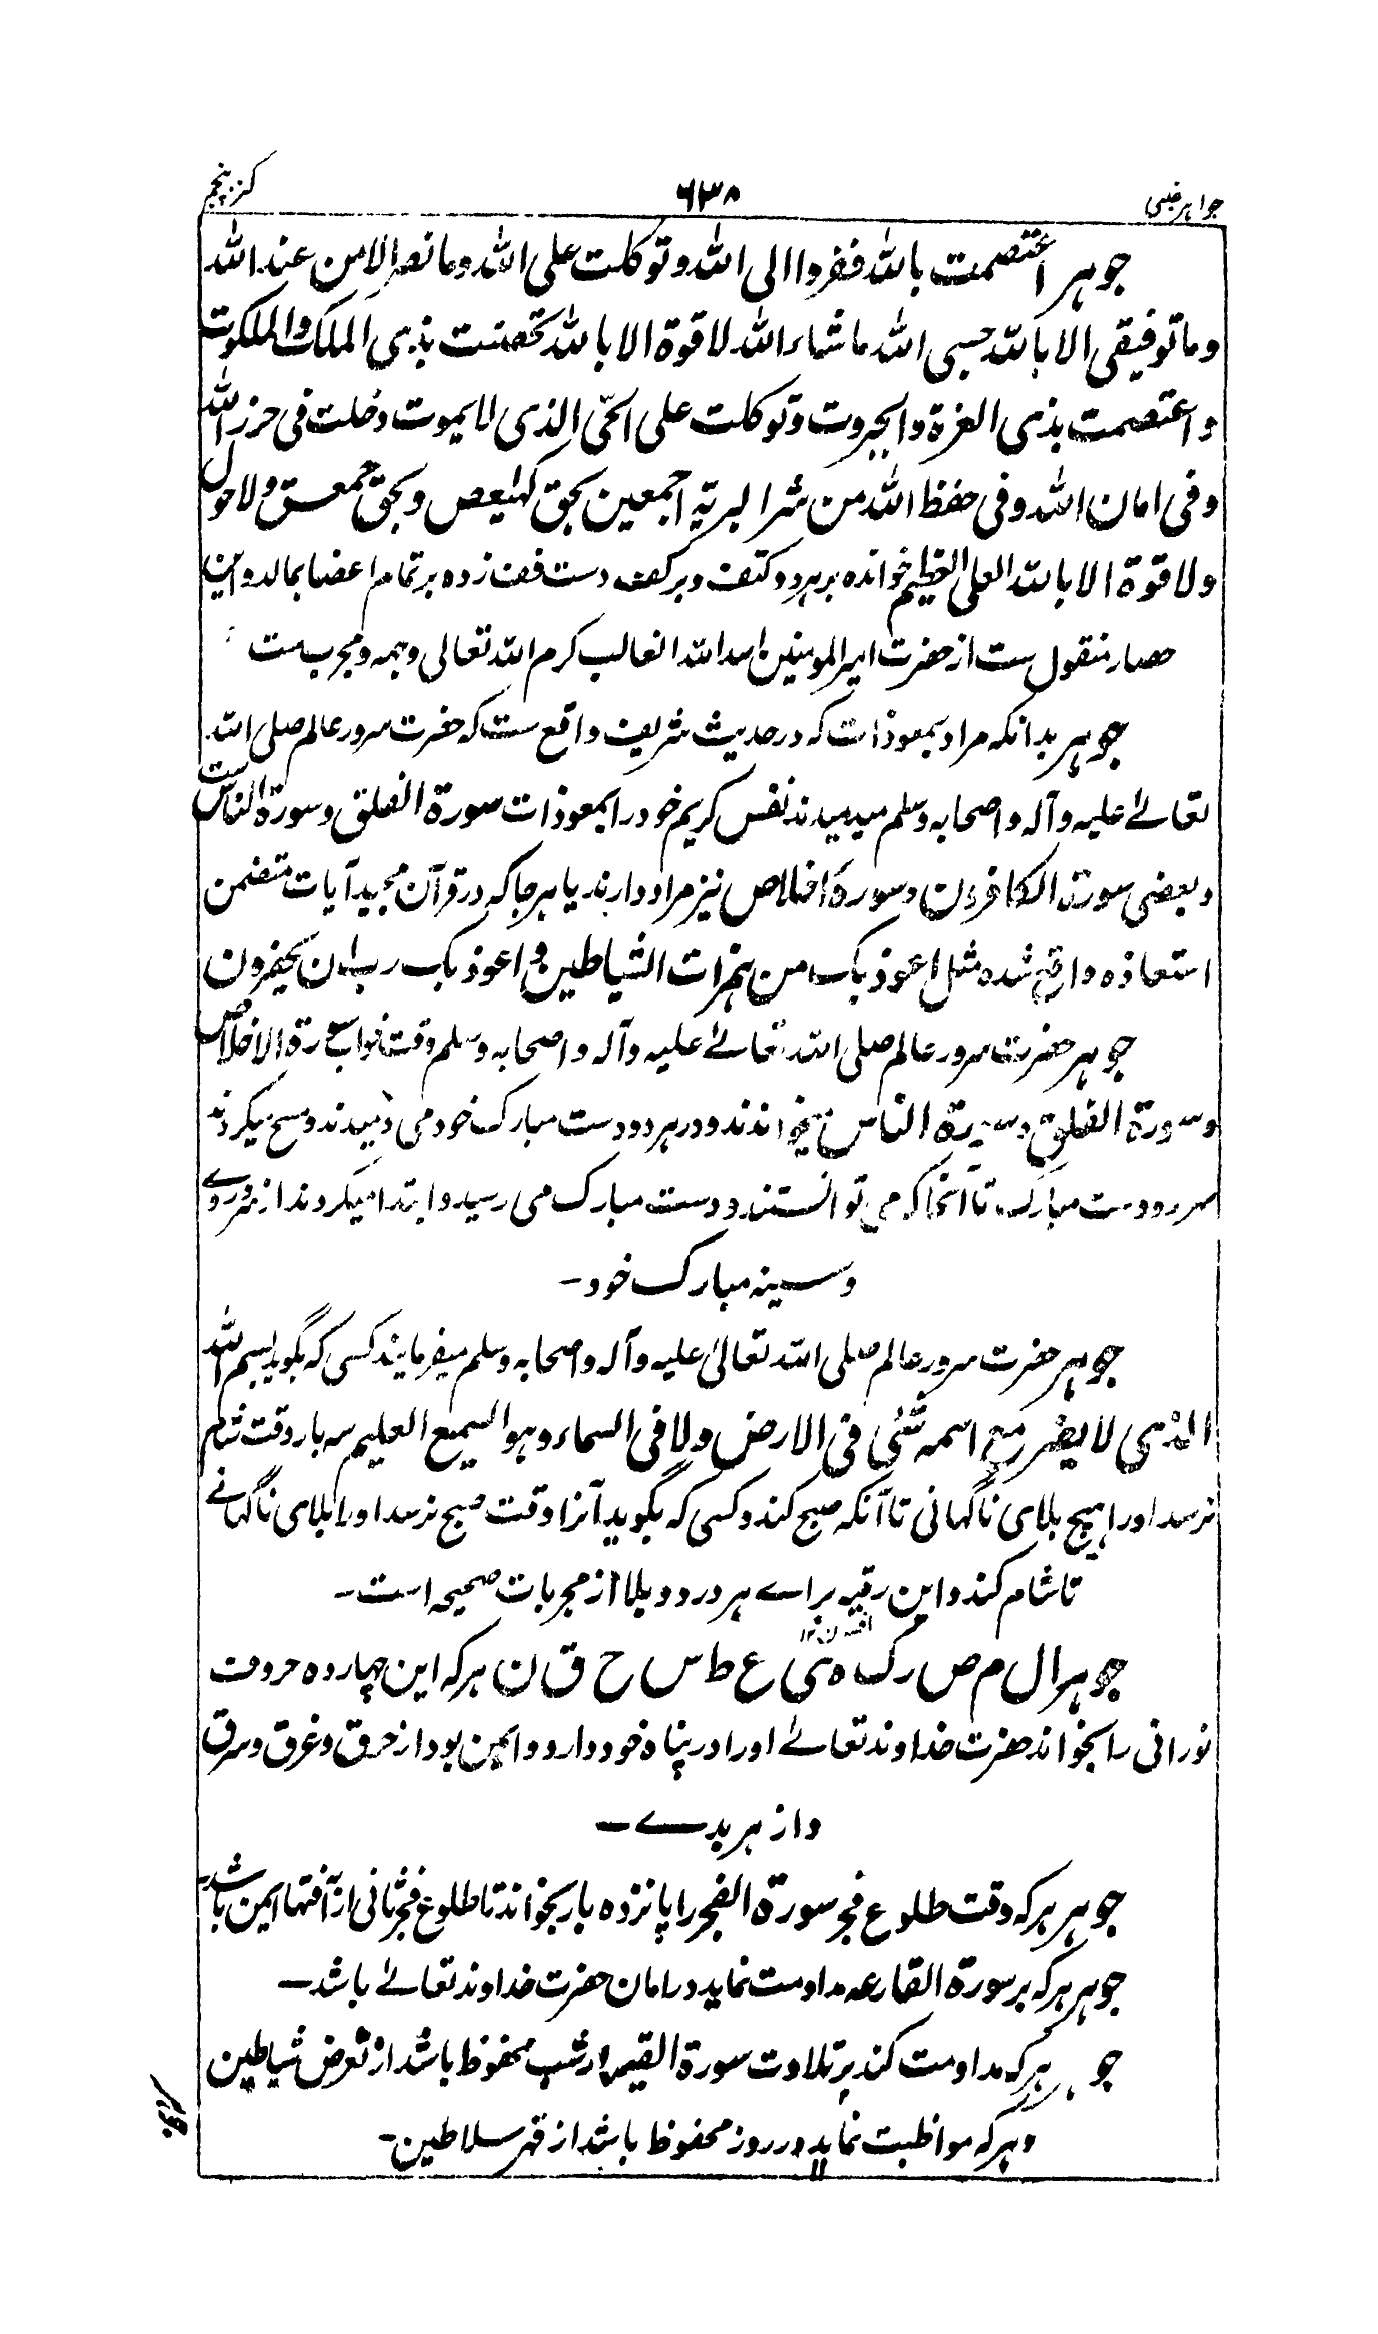 جواهر غیبی
۶۳۸
کنز پنجم
جوهر اعتصمت بالله ففروا الی الله وتوکلت علی الله وما نصر الا من عند الله
وما توفیقی الا بالله حسبی الله ما شاء الله لا قوة الا بالله تحصنت بذی الملک والملکوت
واعتصمت بذی العزة والجبروت وتوکلت علی الحی الذی لا یموت دخلت فی حرز الله
وفی امان الله وفی حفظ الله من شر البریة اجمعین بحق کهیعص وبحق حمعسق ولا حول
ولا قوة الا بالله العلی العظیم خوانده بر هر دو کتف و بر کف دست تف زده بر تمام اعضا بمالد و این
حصار منقول ست از حضرت امیر المومنین اسد الله الغالب کرم الله تعالی وجهه و مجرب ست
جوهر بدانکه مراد بمعوذات که در حدیث شریف واقع ست که حضرت سرور عالم صلی الله
تعالے علیه وآله واصحابه وسلم میدمیدند نفس کریم خود را بمعوذات سورة الفلق وسورة الناس ست
وبعضی سورة الکافرون وسورۀ اخلاص نیز مراد دارند یا هر جا که در قرآن مجید آیات متضمن
استعاذه واقع شده مثل اعوذ بک من همزات الشیاطین واعوذ بک رب ان یحضرون
جوهر حضرت سرور عالم صلی الله تعالے علیه وآله واصحابه وسلم وقت خواب سورة الاخلاص
وسورة الفلق وسورة الناس میخواندند ودر هر دو دست مبارک خود می دمیدند ومسح میکردند
هر دو دست مبارک تا آنجا که می توانستند ودست مبارک می رسید وابتدا میکردند از سر وروے
وسینه مبارک خود -
جوهر حضرت سرور عالم صلی الله تعالیٰ علیه وآله واصحابه وسلم میفرمایند کسی که بگوید بسم الله
الذی لا یضر مع اسمه شئی فی الارض ولا فی السماء وهو السمیع العلیم سه بار وقت شام
نرسد او را هیچ بلای ناگهانی تا آنکه صبح کند وکسی که بگوید آنرا وقت صبح نرسد او را بلای ناگهانے
تا شام کند واین رقیه براے هر درد وبلا از مجربات صحیحه است -
افسون ۱۲
جوهر ال م ص ر ک ه ی ع ط س ح ق ن هر که این چهارده حروف
نورانی را بخواند حضرت خداوند تعالے او را در پناه خود دارد وایمن بود از حرق وغرق وسرق
واز هر بدے -
جوهر هر که وقت طلوع فجر سورة الفجر را پانزده بار بخواند تا طلوع فجر ثانی از آفتها ایمن باشد
جوهر هر که بر سورة القارعه مداومت نماید در امان حضرت خداوند تعالے باشد -
جوهر هر که مداومت کند بر تلاوت سورة القیمة در شب محفوظ باشد از تعرض شیاطین
وهر که مواظبت نماید در روز محفوظ باشد از قهر سلاطین -